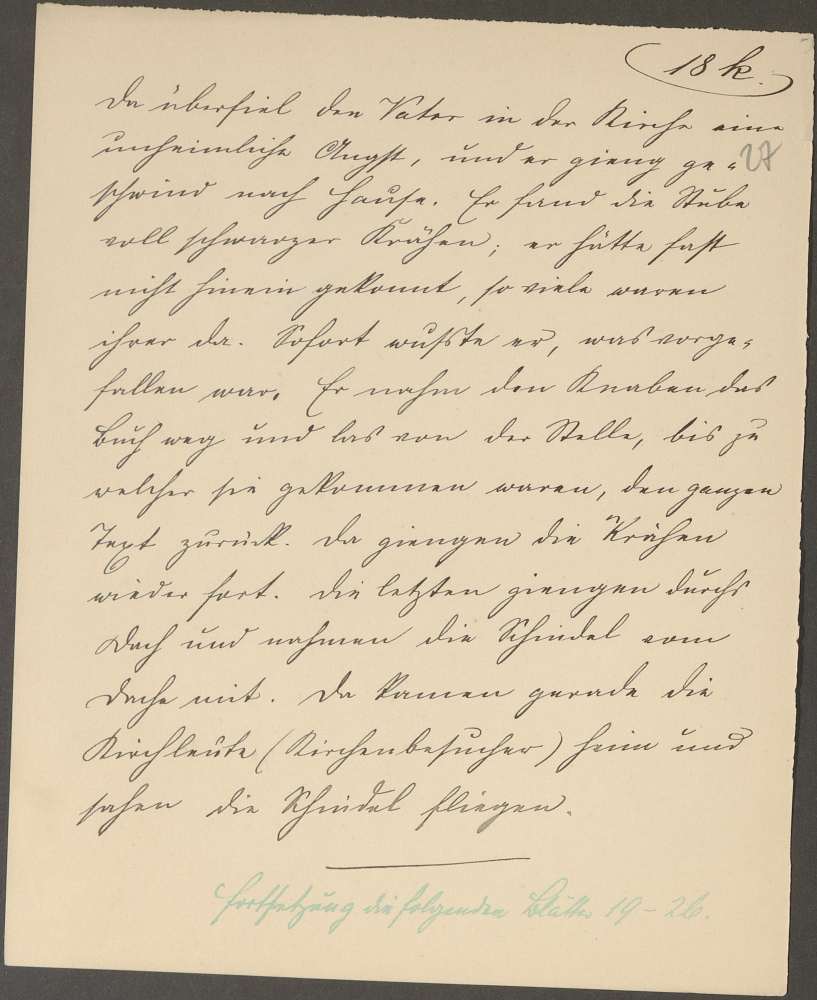 18 k.
Da überfiel den Vater in der Kirche eine
27
unheimliche Angst, und er gieng ge-
schwind nach Hause. Er fand die Stube
voll schwarzer Krähen; er hätte fast
nicht hinein gekonnt, so viele waren
ihrer da. Sofort wußte er, was vorge-
fallen war. Er nahm den Knaben das
Buch weg und las von der Stelle, bis zu
welcher sie gekommen waren, den ganzen
Text zurück. Da giengen die Krähen
wieder fort. Die letzten giengen durchs
Dach und nahmen die Schindel vom
Dache mit. Da kamen gerade die
Kirchleute (Kirchenbesucher) heim und
sahen die Schindel fliegen.
Fortsetzung die folgenden Blätter 19-26.